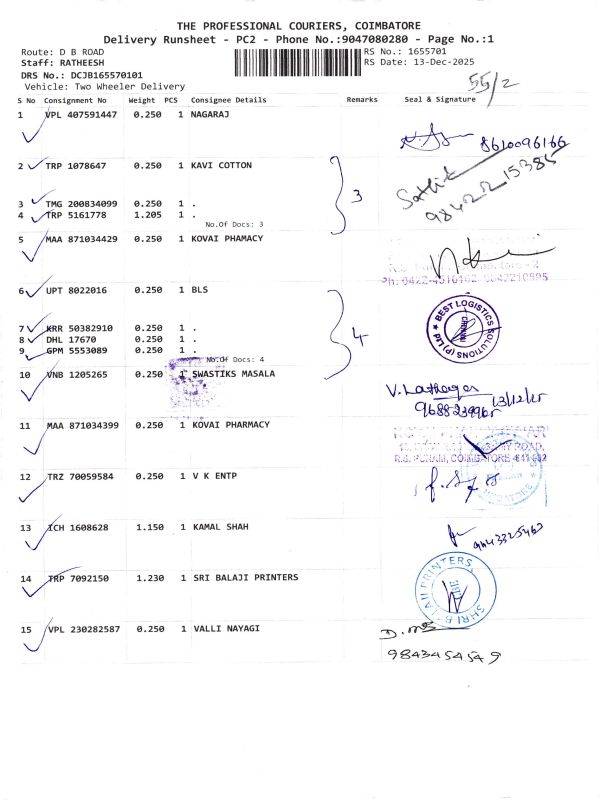 THE PROFESSIONAL COURIERS, COIMBATORE
Delivery Runsheet - PC2 - Phone No.:9047080280 - Page No.:1
Route: D B ROAD
RS No.: 1655701
Staff: RATHEESH
RS Date: 13-Dec-2025
DRS No.: DCJB165570101
55/2
Vehicle: Two Wheeler Delivery
S No Consignment No Weight PCS Consignee Details Remarks Seal & Signature
1 VPL 407591447 0.250 1 NAGARAJ
8610096166
2 TRP 1078647 0.250 1 KAVI COTTON
3
Sathik
98422 15385
3 TMG 200834099 0.250 1 .
4 TRP 5161778 1.205 1 .
No.Of Docs: 3
5 MAA 871034429 0.250 1 KOVAI PHAMACY
6 UPT 8022016 0.250 1 BLS
4
BEST LOGISTICS SOLUTIONS (P) Ltd
7 KRR 50382910 0.250 1 .
8 DHL 17670 0.250 1 .
9 GPM 5553089 0.250 1 .
No.Of Docs: 4
10 VNB 1205265 0.250 1 SWASTIKS MASALA
13/12/25
11 MAA 871034399 0.250 1 KOVAI PHARMACY
R.S. PURAM, COIMBATORE
12 TRZ 70059584 0.250 1 V K ENTP
13 ICH 1608628 1.150 1 KAMAL SHAH
9443325463
14 TRP 7092150 1.230 1 SRI BALAJI PRINTERS
15 VPL 230282587 0.250 1 VALLI NAYAGI
9843454549